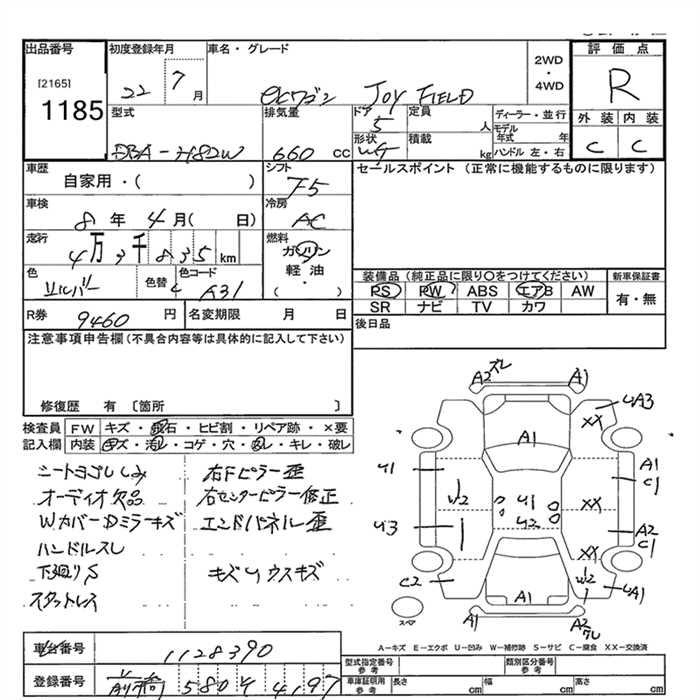 出品番号
[2165]
1185
初度登録年月
22 7月
車名・グレード
ekワゴン JOY FIELD
2WD
・
4WD
評価点
R
外装 内装
C C
型式
DBA-H82W
排気量
660 cc
ドア
5
形状
定員
人
積載
kg
ディーラー・並行
モデル年式 年
ハンドル 左・右
車歴
自家用・( )
シフト
F5
セールスポイント (正常に機能するものに限ります)
車検
8年 4月( 日)
冷房
AC
走行
4万3千835km
燃料
ガソリン
軽油
( ・ )
色
シルバー
色替
色コード
A31
装備品 (純正品に限り○をつけてください)
PS PW ABS エアB AW
SR ナビ TV カワ
新車保証書
有・無
R券 9460円
名変期限 月 日
後日品
注意事項申告欄(不具合内容等は具体的に記入して下さい)
修復歴 有 〔箇所 〕
検査員記入欄
FW キズ・飛石・ヒビ割・リペア跡・×要
内装 キズ・汚れ・コゲ・穴・スレ・キレ・破レ
シートヨゴレシミ
オーディオ欠品
WカバーDミラーキズ
ハンドルスレ
下廻りS
スタットレス
右Fピラー歪
右センターピラー修正
エンドパネル歪
キズUウスキズ
A2 ズレ
A1
UA3
XX
A1
U1
A1
C1
W2
U1
U2
XX
U3
A2
C1
XX
C2
W2
UA1
A1
U1
A2
ズレ
スペア
A-キズ E-エクボ U-凹み W-補修跡 S-サビ C-腐食 XX-交換済
車台番号 1128390
登録番号 前橋 580 4197
型式指定番号
参考
類別区分番号
参考
車庫証明用
参考
長さ cm
幅 cm
高さ cm